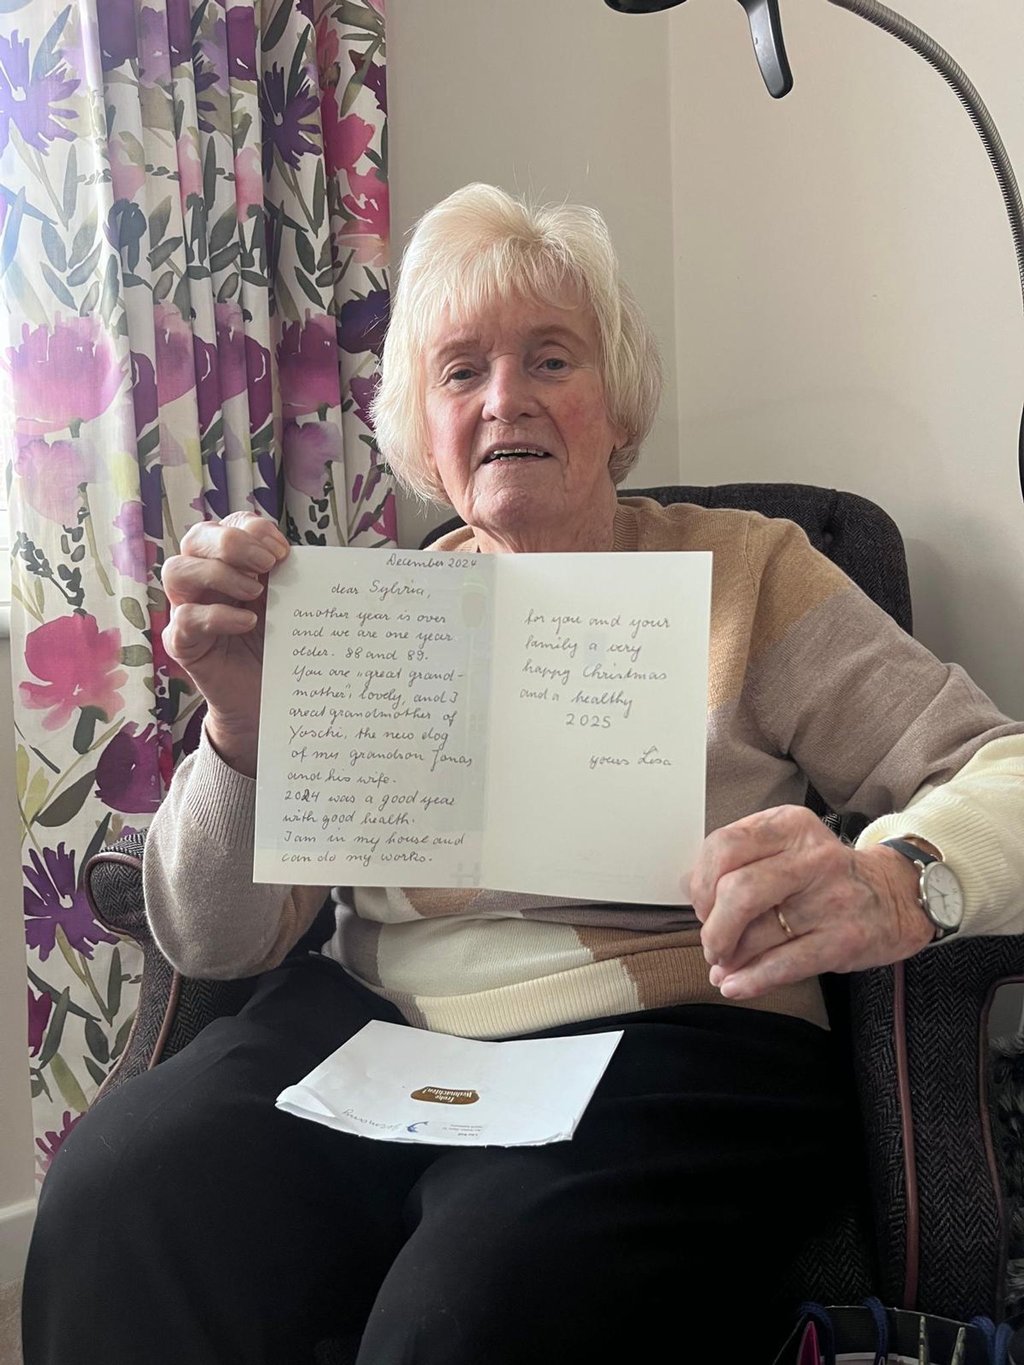 December 2024
dear Sylvia,
another year is over
and we are one year
older. 88 and 89.
You are „great grand-
mother", lovely, and I
great grandmother of
Yoschi, the new dog
of my grandson Jonas
and his wife.
2024 was a good year
with good health.
I am in my house and
can do my works.
for you and your
family a very
happy Christmas
and a healthy
2025
yours Lisa
Frohe
Weihnachten!
Germany